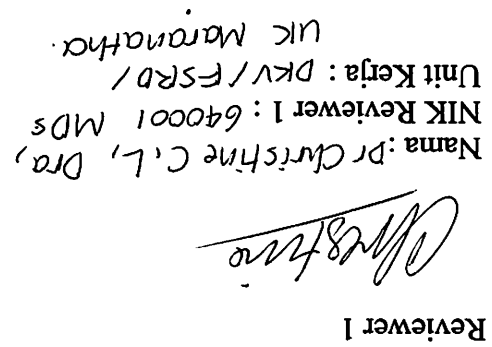 Reviewer 1
Christine
Nama: Dr Christine C.L, Dra,
NIK Reviewer 1 : 640001 MDs
Unit Kerja : DKV/FSRD/
UK Maranatha.